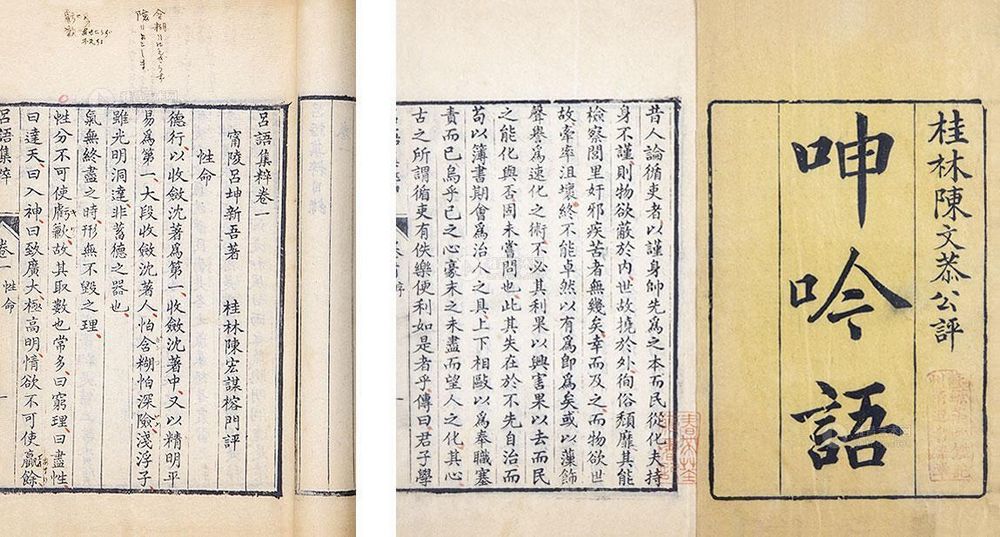 桂林陳文恭公評
呻吟語
昔人論循吏者以謹身帥先爲之本而民從化夫持
身不謹則物欲蔽於内世故撓於外徇俗頹靡其能
檢察閭里奸邪疾苦者無幾矣幸而及之而物欲世
故牽率沮壞終不能卓然以有爲即爲矣或以藻飾
聲譽爲速化之術不必其利果以興害果以去而民
之能化與否固未嘗問也此其失在於不先自治而
苟以簿書期會爲治人之具上下相敺以爲奉職塞
責而已烏乎己之心豪末之未盡而望人之化其心
古之所謂循吏有佚樂便利如是者乎傳曰君子學
呂語集粹卷一
甯陵呂坤新吾著 桂林陳宏謀榕門評
性命
德行以收斂沈著爲第一收斂沈著中又以精明平
易爲第一大段收斂沈著人怕含糊怕深險淺浮子
雖光明洞達非蓄德之器也
氣無終盡之時形無不毀之理
性分不可使虧歉故其取數也常多曰窮理曰盡性
曰達天曰入神曰致廣大極高明情欲不可使贏餘
呂語集粹 卷一 性命 一